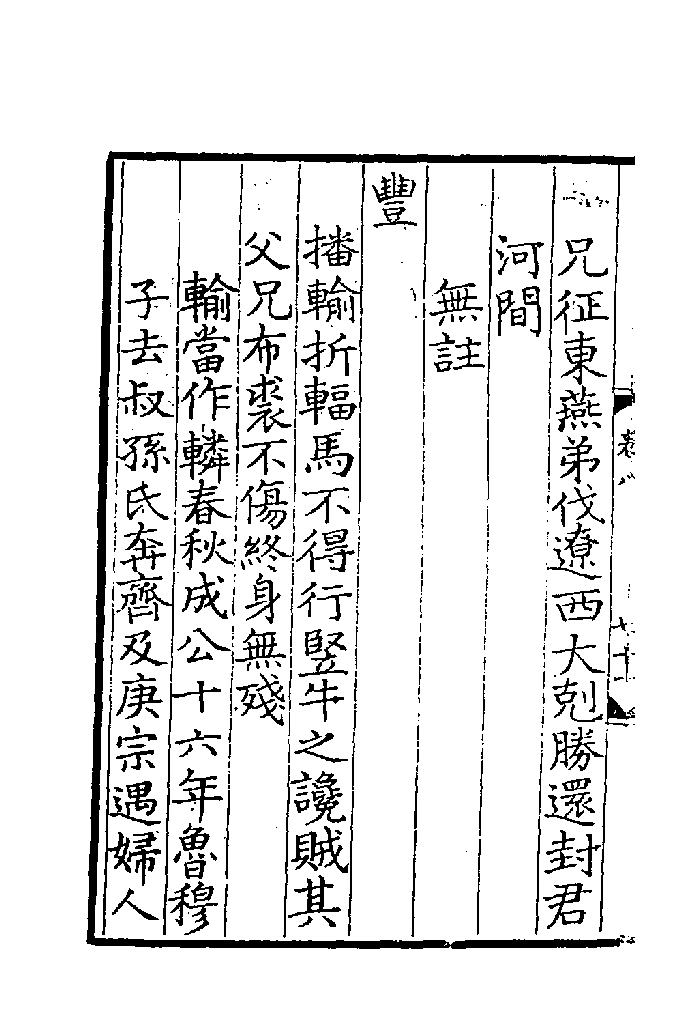 兄征東燕弟伐遼西大剋勝還封君
河間
無註
豐
播輸折輻馬不得行竪牛之讒賊其
父兄布裘不傷終身無殘
輸當作轔春秋成公十六年魯穆
子去叔孫氏奔齊及庚宗遇婦人
卷八